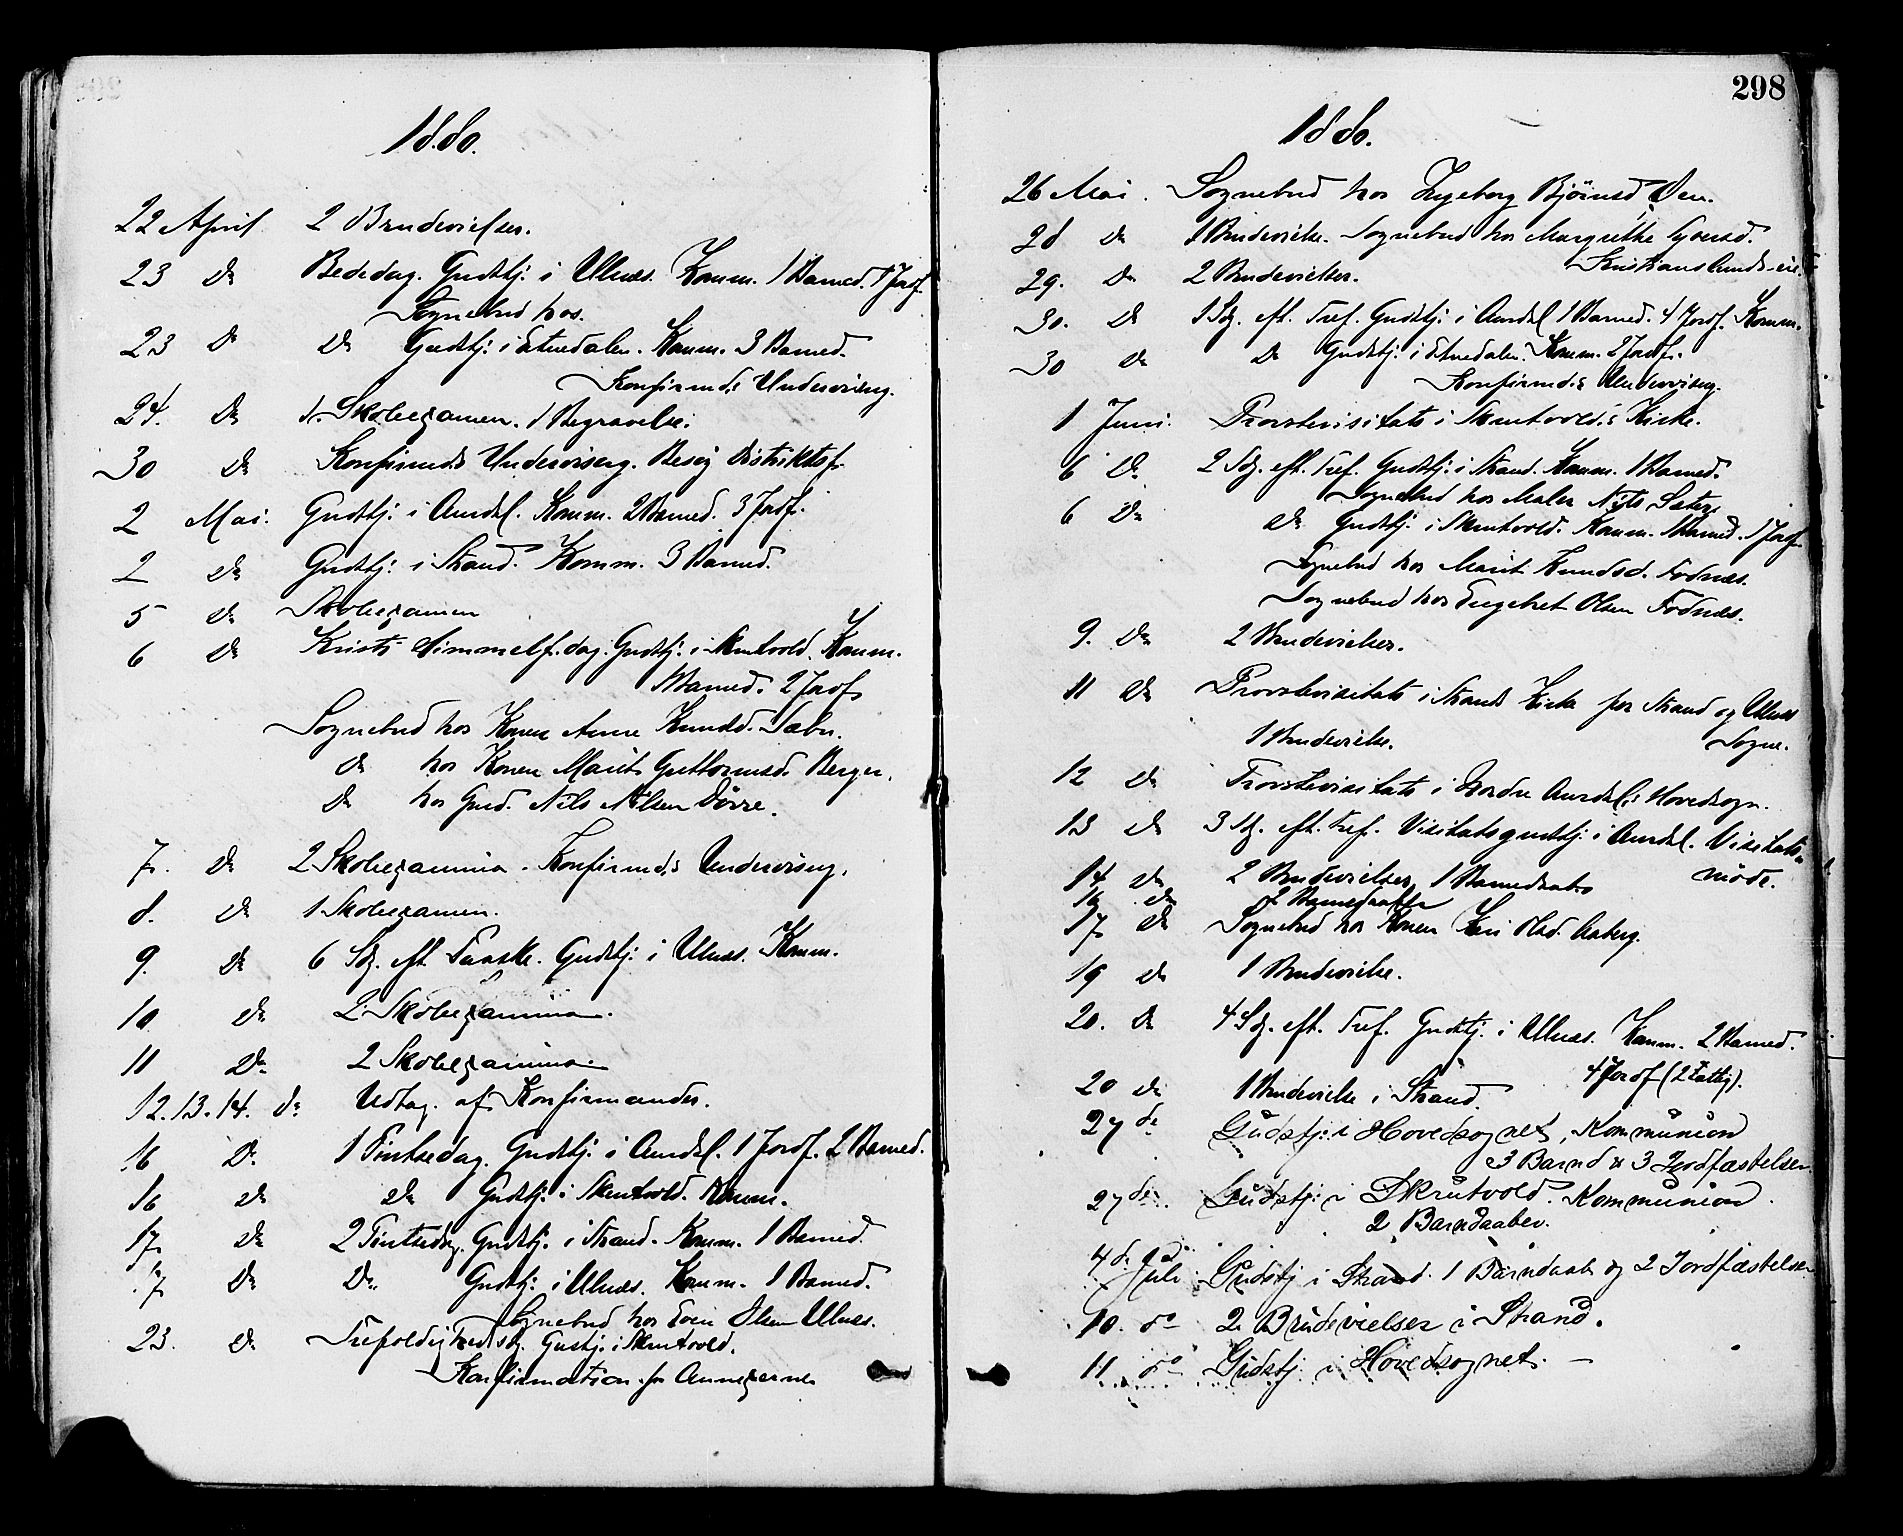 1880.
22 April 2 Brudevielser.
23 Do Bededag. Gudstj: i Ulnæs. Komm. 1 Barned. 1 Jordf.
Sognebud hos.
23 Do Do Gudstj: i Etnedalen. Komm. 3 Barned.
Konfirmds Undervisng.
24. Do 1. Skoleexamen. 1 Begravelse.
30 Do Konfirmds Undervisng. Besøg Distriktsf.
2 Mai. Gudstj: i Aurdal. Komm. 2 Barned. 3 Jordf.
2 Do Gudstj: i Strand. Komm. 3 Barned.
5 Do Skoleexamen
6 Do Kristi Himmelf.dag. Gudstj: i Skrutvold. Komm.
1 Barned. 2 Jordf.
Sognebud hos Konen Anne Knudsd. Sæbu.
Do hos Konen Marit Guttormsd. Berger.
Do hos Gmd. Nils Nilsen Dövre.
7. Do 2 Skoleexamina. Konfirmds Undervisng.
8. Do 1 Skoleexamen.
9. Do 6 Sdg. eft. Paaske. Gudstj: i Ulnæs. Komm.
10 Do 2 Skoleexamina.
11 Do 2 Skoleexamina.
12.13.14. do Udtag. af Konfirmander.
16 Do 1 Pintsedag. Gudstj: i Aurdal. 1 Jordf. 2 Barned.
16 Do Do Gudstj: i Skrutvold. Komm.
17. Do 2 Pintsedag. Gudstj. i Strand. Komm. 1 Barned.
17. Do Do Gudstj: i Ulnæs. Komm. 1 Barned.
Sognebud hos Olsen Ulnæs.
23. Do Trefoldighedsdg. Gustj: i Skrutvold.
Konfirmation for Annexerne
298
1880.
26 Mai. Sognebud hos Ingeborg Björnsd Øen.
28 Do 1 Brudevielse. Sognebud hos Margrethe
Kristianslunds-eie.
29. Do 2 Brudevielser.
30. Do 1 Sdg. eft. Tref. Gudstj: i Aurdal 1 Barned. 4 Jordf. Komm.
30 Do Do Gudstj: i Etnedalen. Komm. 2 Jordf.
Konfirmds Undervisng.
1 Juni. Provstevisitats i Skrutvolds Kirke.
6 Do 2 Sdg. eft. Tref. Gudstj: i Strand. Komm. 1 Barned.
Sognebud hos Maler Nils Sæter
6 Do Do Gudstj: i Skrutvold. Komm. 1 Barned. 1 Jordf.
Sognebud hos Marit Knudsd. Fodnæs.
Sognebud hos Engebret Olsen Fodnæs.
9. Do 2 Brudevielser.
11 Do Provstevisitats i Strands Kirke for Strand og Ulnæs
1 Brudevielse. Sogne.
12 Do Provstevisitats i Nordre Aurdals Hovedsogn.
13 Do 3 Sdg. eft. Tref. Visitatsgudstj: i Aurdal. Visitats-
möde.
14 Do 2 Brudevielser, 1 Barnedaab
16 Do Barnedaab
17. Do Sognebud hos Konen Kari Olsd. Aaberg.
19 Do 1 Brudevielse.
20. Do 4 Sdg. eft. Tref. Gudstj. i Ulnæs. Komm. 2 Barned.
4 Jordf (2 Fattig).
20 Do 1 Brudevielse i Strand.
27 do Gudstj: i Hovedsognet, Kommunion
3 Barnd & 3 Jordfæstelser
27 do. Gudstj: i Skrutvold. Kommunion.
2 Barndaaber.
4d. Juli. Gudstj i Strand. 1 Barndaab og 2 Jordfæstelser
10. do 2 Brudevielser i Strand.
11 do Gudstj i Hovedsognet. —